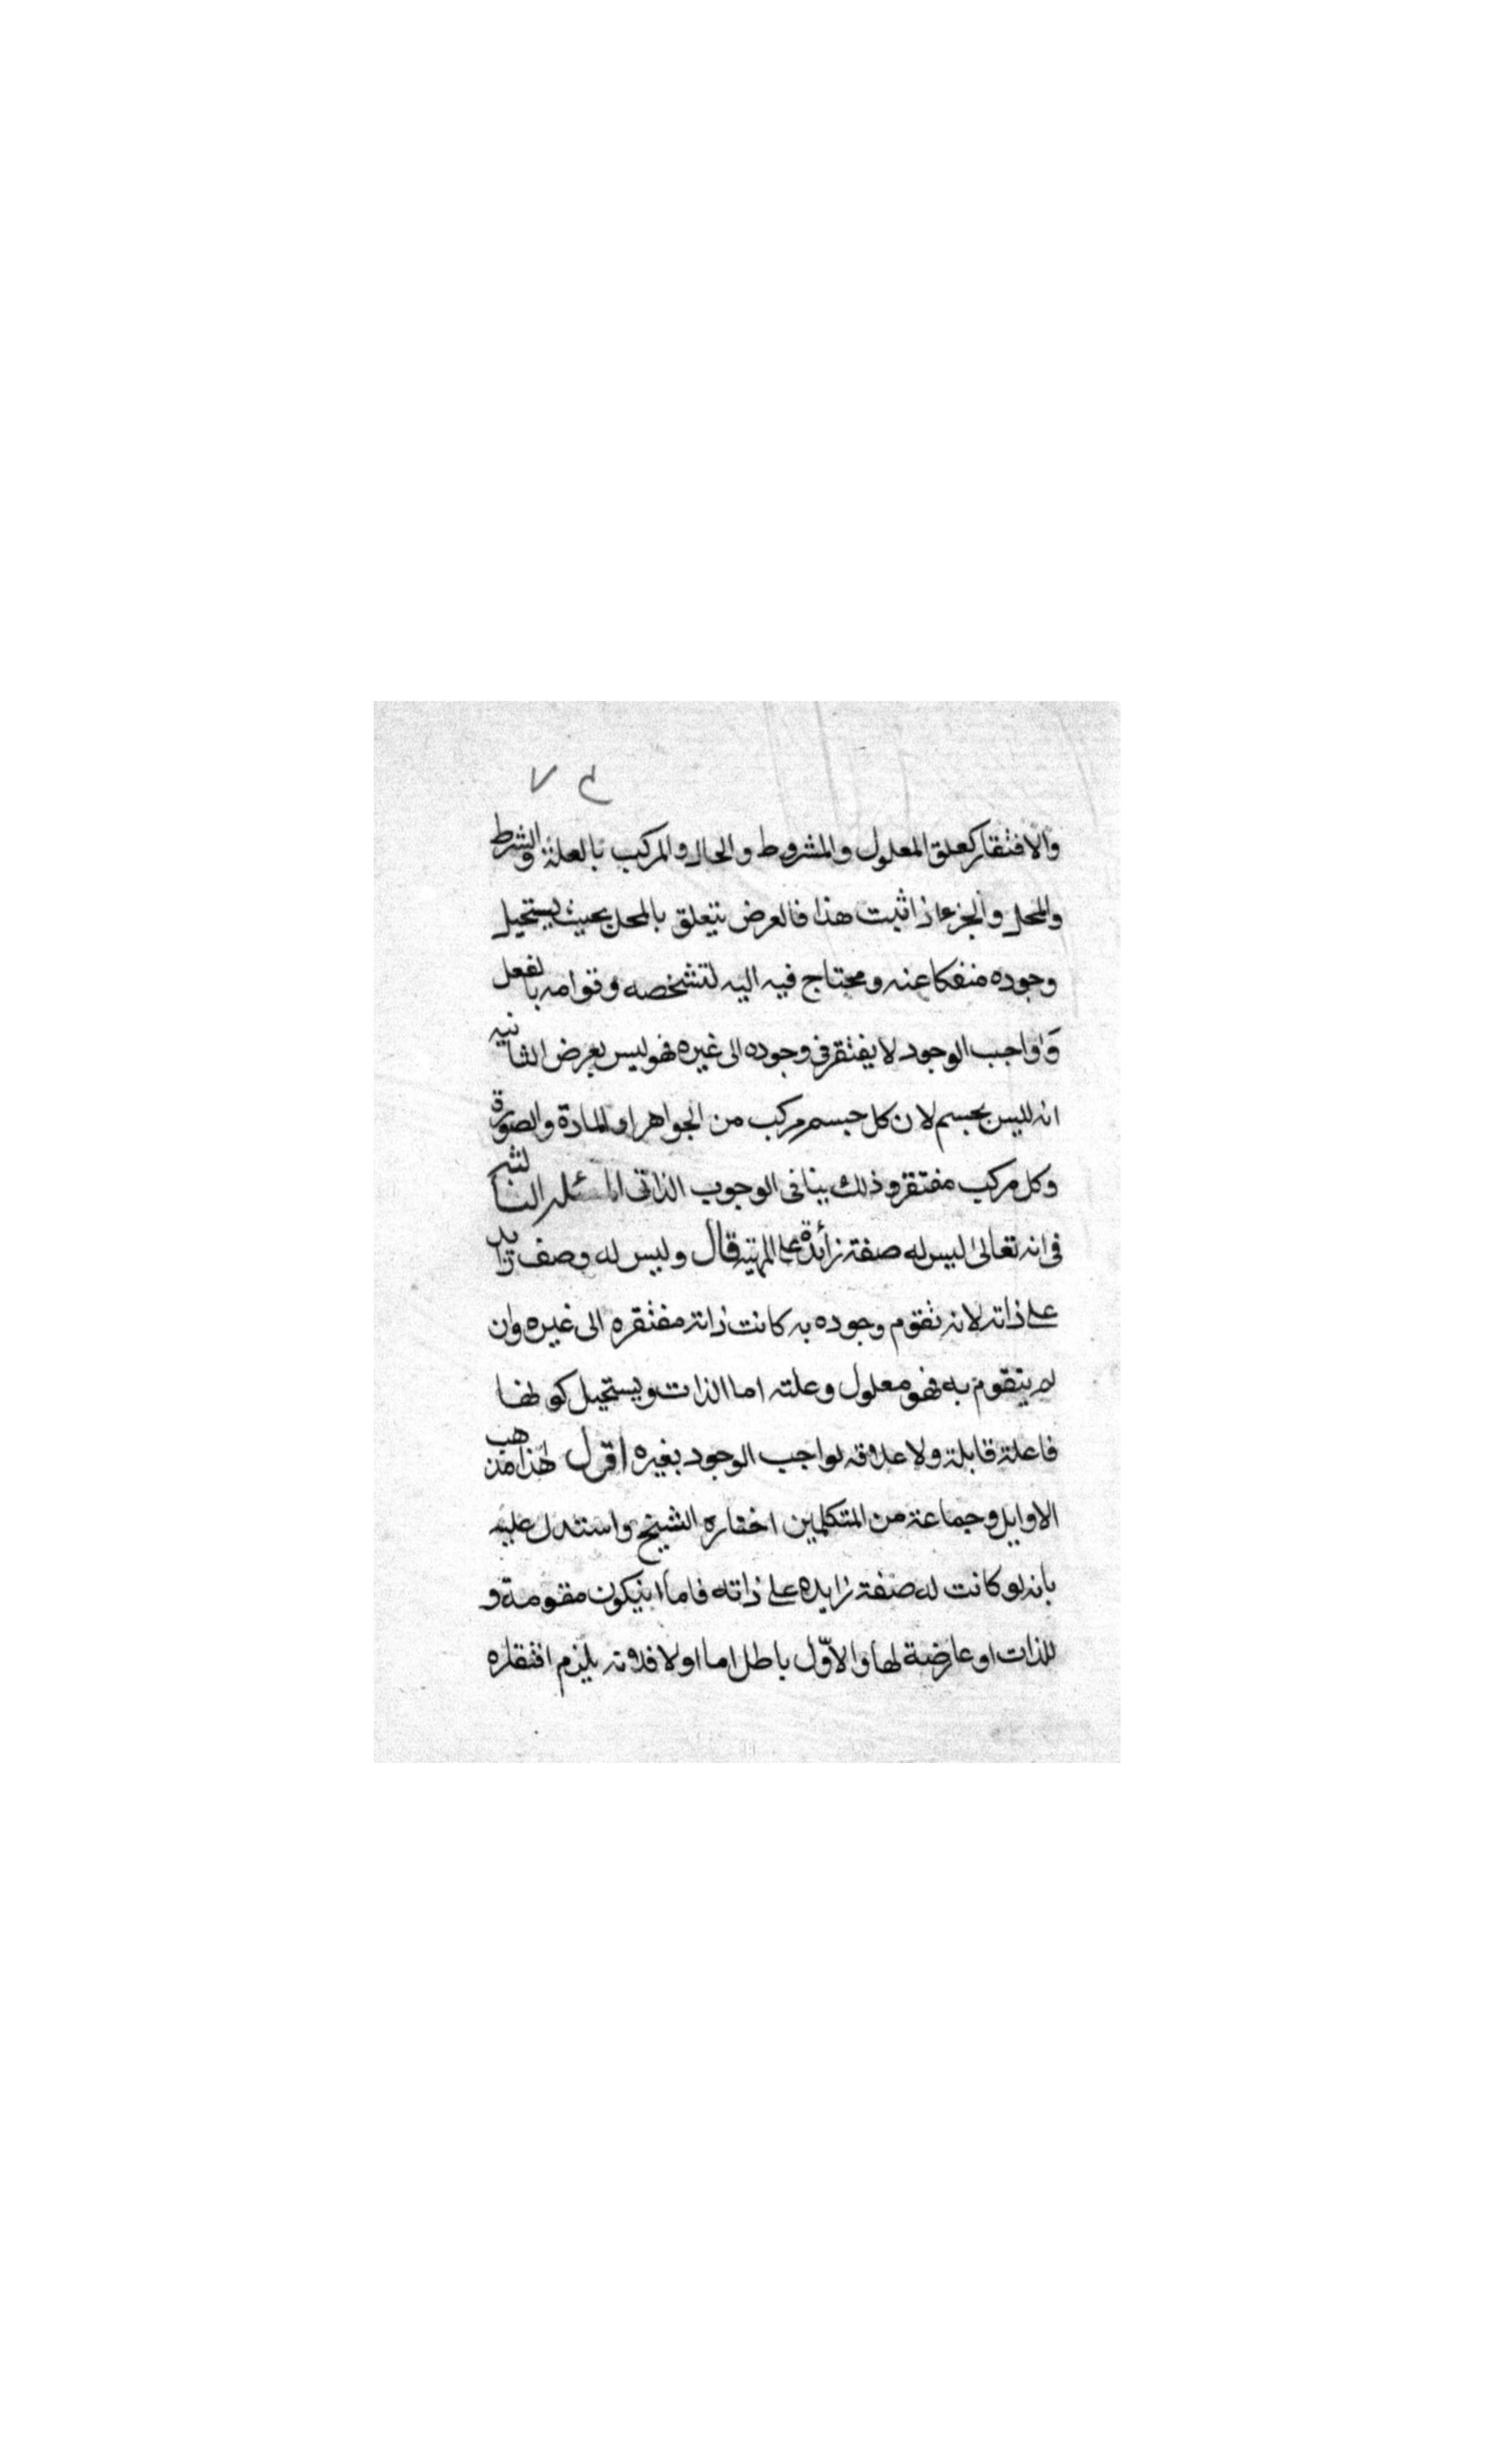 والافتقار كعلق المعلول والمشروط والحال والمركب بالعلة والشرط
والمحل والجزء اذا ثبت هذا فالعرض يتعلق بالمحل بحيث يستحيل
وجوده منفكا عنه ومحتاج فيه اليه لتشخصه وقوامه بالفعل
وواجب الوجود لا يفتقر في وجوده الى غيره فهو ليس بعرض الثانيه
انه ليس بجسم لان كل جسم مركب من الجواهر او المادة والصورة
وكل مركب مفتقر وذلك ينافى الوجوب الذاتى المسئله الثالثه
فى انه تعالىٰ ليس له صفة زائدة على المهية قال وليس له وصف زايد
على ذاته لانه تقوم وجوده به كانت ذاته مفتقره الى غيره وان
لم يتقوم به فهو معلول وعلته اما الذات ويستحيل كونها
فاعلة قابلة ولا علاقه لواجب الوجود بغيره اقول هذا مذهب
الاوايل وجماعة من المتكلمين اختاره الشيخ واستدل عليه
بانه لو كانت له صفة زايده على ذاته فاما انيكون مقومة و
للذات او عارضة لها والاوّل باطل اما اولا فلانه يلزم افتقاره